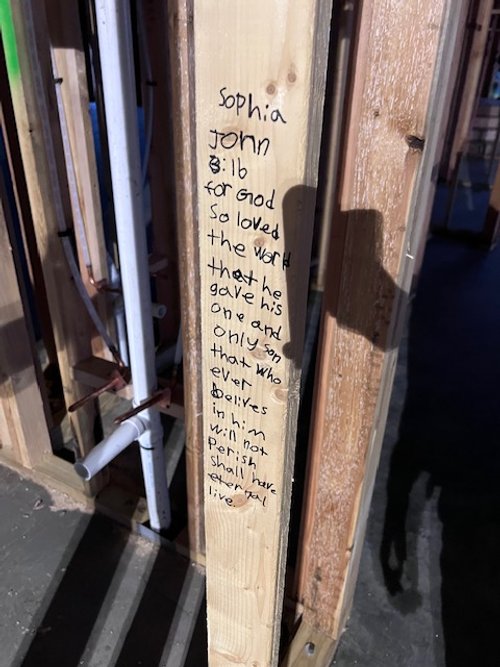 Sophia
John
3:16
for God
So loved
the world
that he
gave his
one and
only son
that who
ever
Belives
in him
will not
Perish
Shall have
eternal
live.